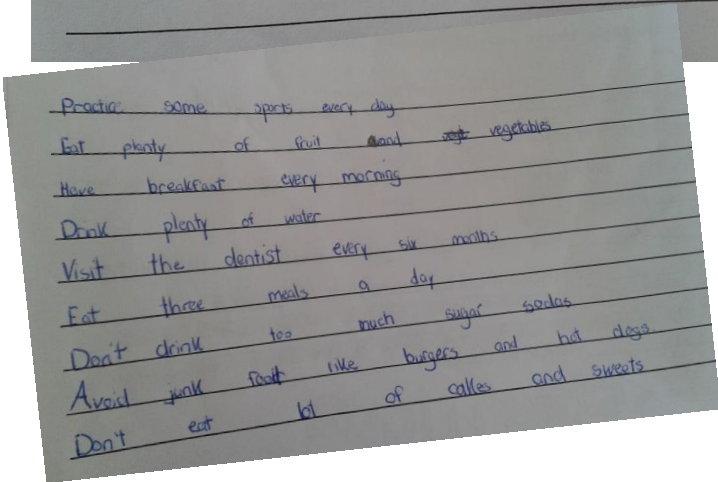 Practic some sports every day
Eat plenty of fruit and vegetables
Have breakfast every morning
Drink plenty of water
Visit the dentist every six months
Eat three meals a day
Don't drink too much sugar sodas
Avoid junk food like burgers and hot dogs
Don't eat lot of cakes and sweets